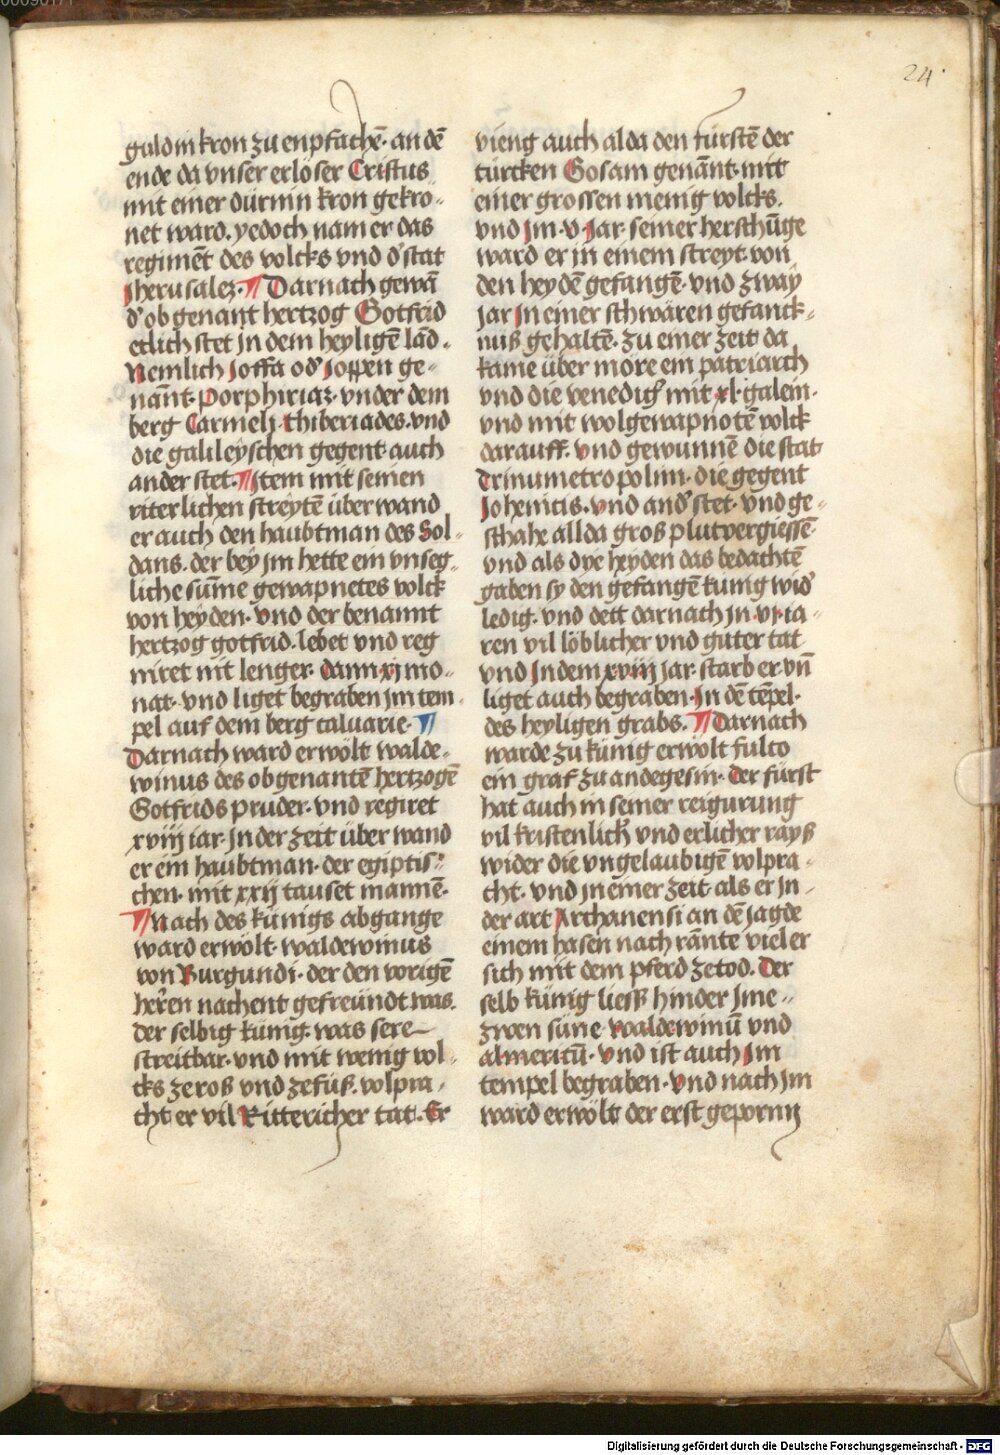 24
guldin kron zu enpfachē· an dē
ende da vnser erlöser Cristus
mit einer dürnin kron gekro-
net ward. yedoch nam er das
regimēt des volcks vnd d' stat
Jherusalez· ¶ Darnach gewā
d' obgenant hertzog Gotfrid
etlich stet jn dem heyligē lād·
Nemlich Joffa od' Joppen ge-
nānt· Porphiriaz· vnder dem
berg Carmelj· thiberiades· vnd
die galileyschen gegent auch
ander stet· ¶ Item mit seinen
riterlichen streytē über wand
er auch den haubtman des Sol-
dans. der bey jm hette ein vnseg-
liche sūme gewapnetes volck
von heyden· vnd der benannt
hertzog gotfrid· lebet vnd reg
niret nit lenger· dann· xj mo-
nat· vnd liget begraben jm tem-
pel auf dem berg caluarie· ¶
Darnach ward erwölt walde-
winus des obgenantē hertzogē
Gotfrids pruder· vnd regiret
xviij iar· jn der zeit über wand
er ein haubtman· der egiptis-
chen· mit xxij tauset mannē·
¶ Nach des künigs abgange
ward erwölt· waldewinus
von Burgundi· der den vorigē
herren nachent gefreündt was.
der selbig künig· was sere
streitbar· vnd mit wenig vol-
cks zeroß vnd zefüß. volpra-
cht er vil Rittericher tat· Er
vieng auch alda den fürstē der
türcken Gosam genānt· mit
einer grossen menig volcks.
vnd jm· v· Jar· seiner herschūge
ward er in einem streyt· von
den heydē gefangē· vnd zway
jar jn einer schwären gefanck-
nuß gehaltē· zu einer zeit da
kame über möre ein patriarch
vnd die venedig' mit· xl· galein·
vnd mit wolgewapnotē volck
darauff· vnd gewunnē die stat
Trinumetropolim· die gegent
Johenicis· vnd and' stet· vnd ge-
schahe allda groß plutvergiessē·
vnd als dye heyden das bedachtē
gaben sy den gefangē kunig wid'
ledig· vnd dett darnach jn· vj· ia-
ren vil löblicher vnd guter tat
vnd jn dem xviij jar· starb er· vn̄
liget auch begraben· jn dē tēpel·
des heyligen grabs. ¶ Darnach
warde zu künig erwölt fulco
ein graf zu andegesin· der fürst
hat auch in seiner reigurung
vil kristenlich' vnd erlicher rayß
wider die vngelaubigē volpra-
cht· vnd jn einer zeit· als er jn
der art Archanensi an dē jagde
einem hasen nach rānte viel er
sich mit dem pferd zetod. Der
selb künig liess hinder jme
zwen süne· waldewinū vnd
almericū· vnd ist auch jm
tempel begraben· vnd nach jm
ward erwölt der erst gepornn
Digitalisierung gefördert durch die Deutsche Forschungsgemeinschaft - DFG